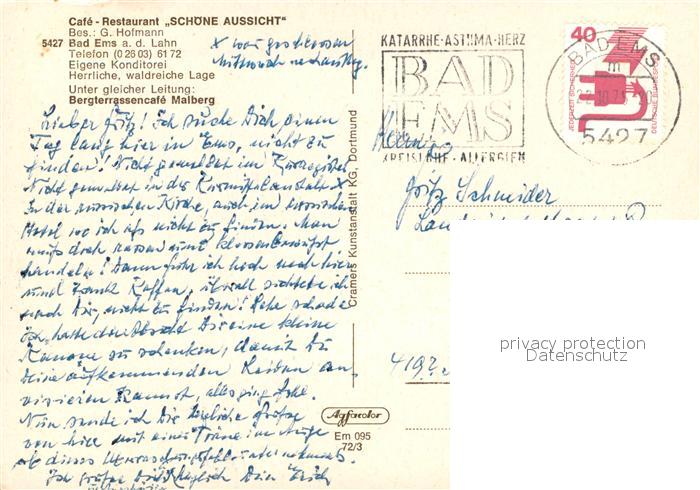 Café - Restaurant „SCHÖNE AUSSICHT"
Bes.: G. Hofmann
5427 Bad Ems a. d. Lahn
Telefon (0 26 03) 61 72
Eigene Konditorei
Herrliche, waldreiche Lage
Unter gleicher Leitung:
Bergterrassencafé Malberg
x war
Mittwoch nachmittag.
Lieber Fritz! Ich suche Dich einen
Tag lang hier in Ems, nicht zu
finden! Nicht gemeldet im Kurregister
Nicht gemeldet in der Kurmittelanstalt x
In der russischen Kirche, auch im russischen
Hotel wo ich aß nicht zu finden. Man
muß doch
handeln! Dann fuhr ich hoch nach hier
und trank Kaffee, überall suchte ich
nach Dir, nicht zu finden! Sehr schade
Ich hatte die Absicht Dir eine kleine
Kanone zu schenken, damit Du
Deine aufkommenden
kannst, alles ging
Nun sende ich Dir herzliche Grüße
von hier mit einer Träne im Auge
ob dieses
Ich grüße Dich herzlich Dein Erich
Cramers Kunstanstalt KG, Dortmund
Agfacolor
Em 095
72/3
KATARRHE-ASTHMA-HERZ
BAD
EMS
KREISLAUF-ALLERGIEN
BAD EMS
5427
40
JEDERZEIT SICHERHEIT
DEUTSCHE BUNDESPOST
Herrn
Fritz Schneider
419?
privacy protection
Datenschutz